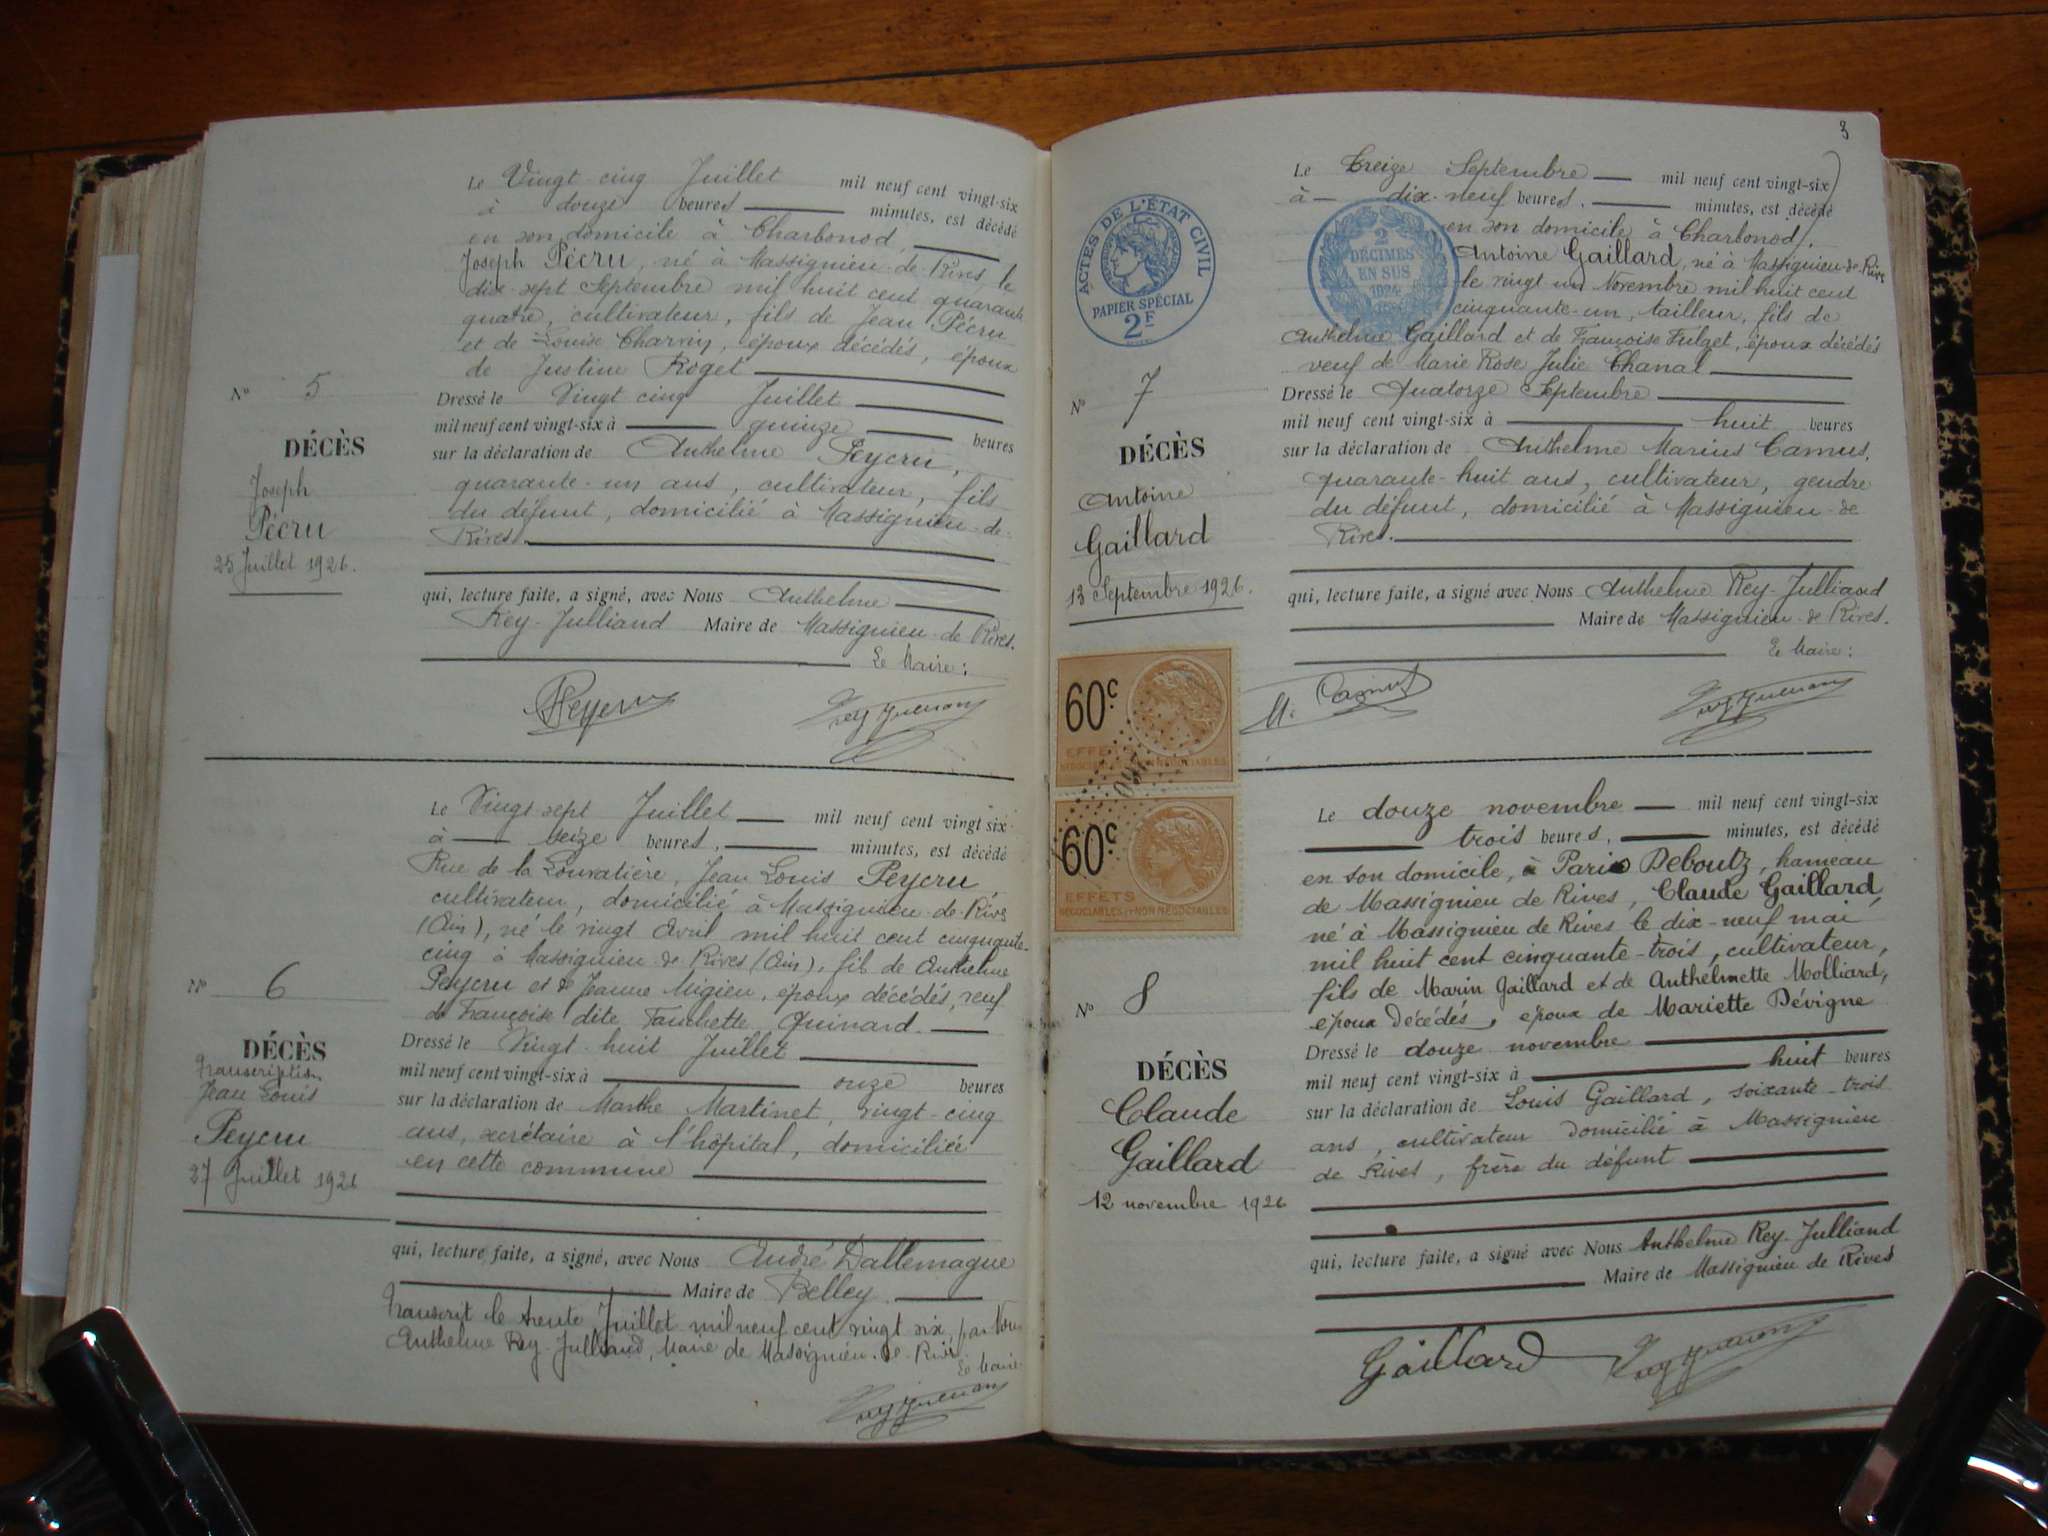 Le Vingt-cinq Juillet mil neuf cent vingt-six
à douze heures minutes, est décédé
en son domicile à Charbonod,
Joseph Pécru, né à Massignieu-de-Rives, le
dix-sept Septembre mil huit cent quarante
quatre, cultivateur, fils de Jean Pécru
et de Louise Charvin, époux décédés, époux
de Justine Roget
Nº 5
DÉCÈS
Joseph
Pécru
25 Juillet 1926.
Dressé le Vingt cinq Juillet
mil neuf cent vingt-six à quinze heures
sur la déclaration de Anthelme Peycru,
quarante-un ans, cultivateur, fils
du défunt, domicilié à Massignieu-de-
Rives.
qui, lecture faite, a signé, avec Nous Anthelme
Rey-Julliand Maire de Massignieu-de Rives.
Le Maire:
Peycru
Rey Julliand
Le Vingt-sept Juillet mil neuf cent vingt six
à seize heures, minutes, est décédé
Rue de la Louvatière, Jean Louis Peycru,
cultivateur, domicilié à Massignieu-de-Rives
(Ain), né le vingt Avril mil huit cent cinquante-
cinq à Massignieu-de-Rives (Ain), fils de Anthelme
Peycru et de Jeanne Migieu, époux décédés, veuf
de Françoise dite Fanchette Quinard.
Nº 6
DÉCÈS
Transcription
Jean Louis
Peycru
27 Juillet 1926
Dressé le Vingt-huit Juillet
mil neuf cent vingt-six à onze heures
sur la déclaration de Marthe Martinet, vingt-cinq
ans, secrétaire à l'hôpital, domiciliée
en cette commune
qui, lecture faite, a signé, avec Nous André Dallemagne
Maire de Belley.
Transcrit le trente Juillet mil neuf cent vingt six, par Nous
Anthelme Rey-Julliand, Maire de Massignieu-de-Rives.
Le Maire
Rey Julliand
3
ACTES DE L'ÉTAT CIVIL
PAPIER SPÉCIAL
2F
2
DÉCIMES
EN SUS
1924
Le treize Septembre mil neuf cent vingt-six
à dix-neuf heures, minutes, est décédé
en son domicile à Charbonod,
Antoine Gaillard, né à Massignieu-de-Rives
le vingt un Novembre mil huit cent
cinquante-un, tailleur, fils de
Anthelme Gaillard et de Françoise Fulget, époux décédés
veuf de Marie Rose Julie Chanal
Nº 7
DÉCÈS
Antoine
Gaillard
13 Septembre 1926.
Dressé le Quatorze Septembre
mil neuf cent vingt-six à huit heures
sur la déclaration de Anthelme Marius Camus,
quarante-huit ans, cultivateur, gendre
du défunt, domicilié à Massignieu-de
Rives.
qui, lecture faite, a signé avec Nous Anthelme Rey-Julliand
Maire de Massignieu-de Rives.
Le Maire:
M. Camus
Rey Julliand
60c
EFFETS
NÉGOCIABLES ET NON NÉGOCIABLES
60c
EFFETS
NÉGOCIABLES ET NON NÉGOCIABLES
Le douze novembre mil neuf cent vingt-six
trois heures, minutes, est décédé
en son domicile, à Paris Deboutz, hameau
de Massignieu de Rives, Claude Gaillard,
né à Massignieu de Rives le dix-neuf mai,
mil huit cent cinquante-trois, cultivateur,
fils de Marin Gaillard et de Anthelmette Molliard,
époux décédés, époux de Mariette Dévigne
Nº 8
DÉCÈS
Claude
Gaillard
12 novembre 1926
Dressé le douze novembre
mil neuf cent vingt-six à huit heures
sur la déclaration de Louis Gaillard, soixante-trois
ans, cultivateur domicilié à Massignieu
de Rives, frère du défunt
qui, lecture faite, a signé avec Nous Anthelme Rey-Julliand
Maire de Massignieu de Rives
Gaillard
Rey Julliand